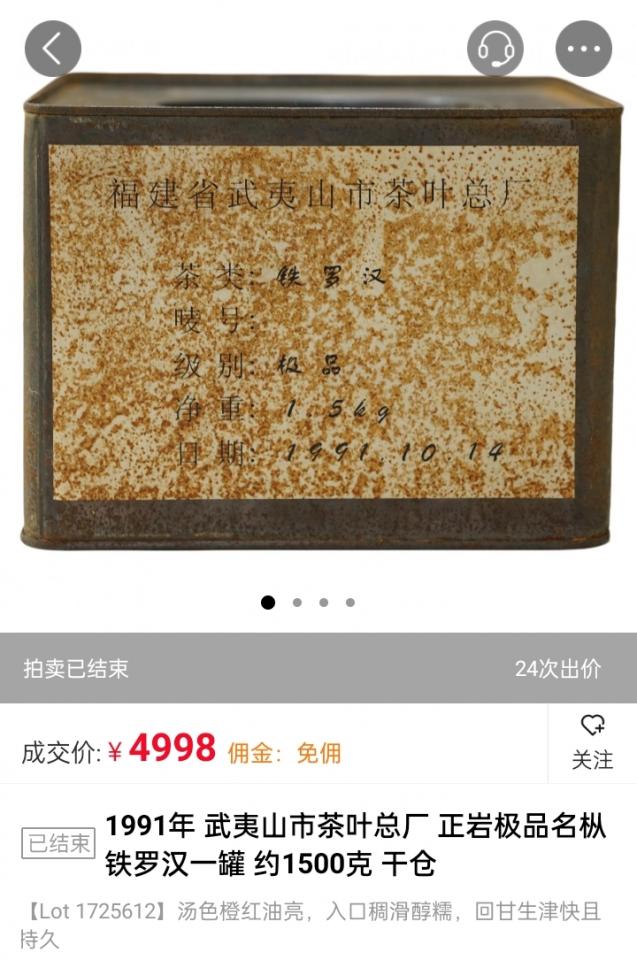 福建省武夷山市茶叶总厂
茶类: 铁罗汉
唛号:
级别: 极品
净重: 1.5kg
日期: 1991.10.14
拍卖已结束
24次出价
成交价: ¥4998 佣金: 免佣
关注
已结束
1991年 武夷山市茶叶总厂 正岩极品名枞
铁罗汉一罐 约1500克 干仓
【Lot 1725612】汤色橙红油亮，入口稠滑醇糯，回甘生津快且
持久